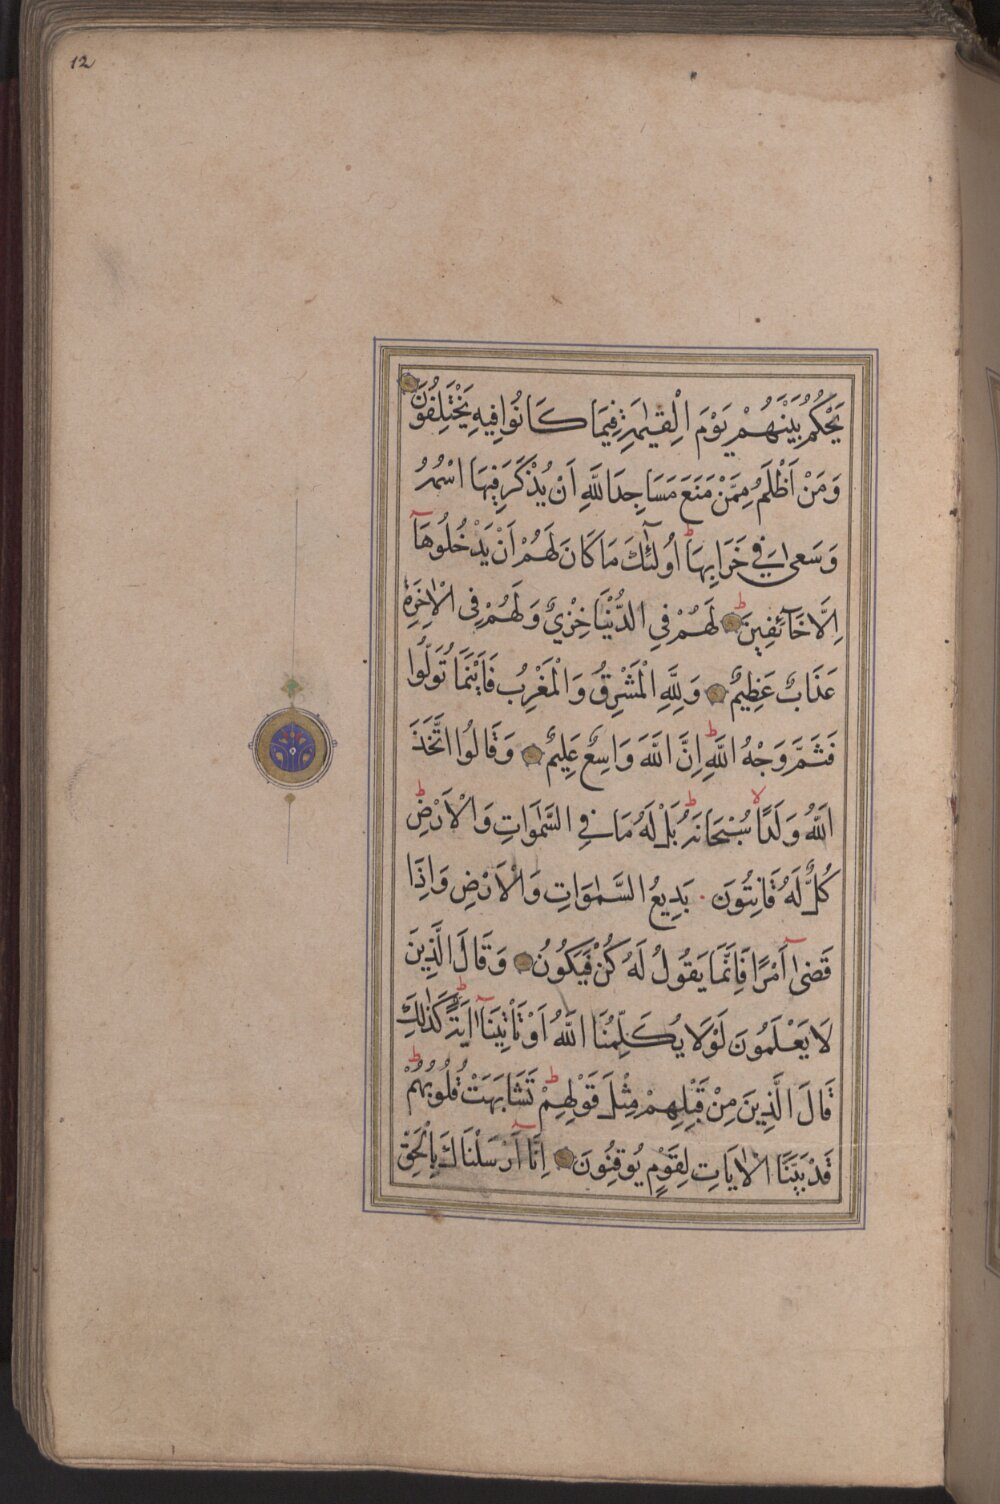 12
يَحْكُمُ بَيْنَهُمْ يَوْمَ الْقِيٰمَةِ فِيمَا كَانُوا فِيهِ يَخْتَلِفُونَ
وَمَنْ اَظْلَمُ مِمَّنْ مَنَعَ مَسَاجِدَ اللَّهِ اَنْ يُذْكَرَ فِيهَا اسْمُهُ
وَسَعىٰ فِي خَرَابِهَا ط اُولٰٓئِكَ مَا كَانَ لَهُمْ اَنْ يَدْخُلُوهَآ
اِلَّا خَآئِفِينَ ط لَهُمْ فِي الدُّنْيَا خِزْيٌ وَلَهُمْ فِي الْاٰخِرَةِ
عَذَابٌ عَظِيمٌ وَلِلَّهِ الْمَشْرِقُ وَالْمَغْرِبُ فَاَيْنَمَا تُوَلُّوا
فَثَمَّ وَجْهُ اللَّهِ ط اِنَّ اللَّهَ وَاسِعٌ عَلِيمٌ وَقَالُوا اتَّخَذَ
اللَّهُ وَلَدًا لا سُبْحَانَهُ ط بَلْ لَهُ مَا فِي السَّمٰوَاتِ وَالْاَرْضِ ط
كُلٌّ لَهُ قَانِتُونَ بَدِيعُ السَّمٰوَاتِ وَالْاَرْضِ وَاِذَا
قَضىٰٓ اَمْرًا فَاِنَّمَا يَقُولُ لَهُ كُنْ فَيَكُونُ وَقَالَ الَّذِينَ
لَا يَعْلَمُونَ لَوْلَا يُكَلِّمُنَا اللَّهُ اَوْ تَأْتِينَآ اٰيَةٌ ط كَذٰلِكَ
قَالَ الَّذِينَ مِنْ قَبْلِهِمْ مِثْلَ قَوْلِهِمْ ط تَشَابَهَتْ قُلُوبُهُمْ ط
قَدْ بَيَّنَّا الْاٰيَاتِ لِقَوْمٍ يُوقِنُونَ اِنَّآ اَرْسَلْنَاكَ بِالْحَقِّ